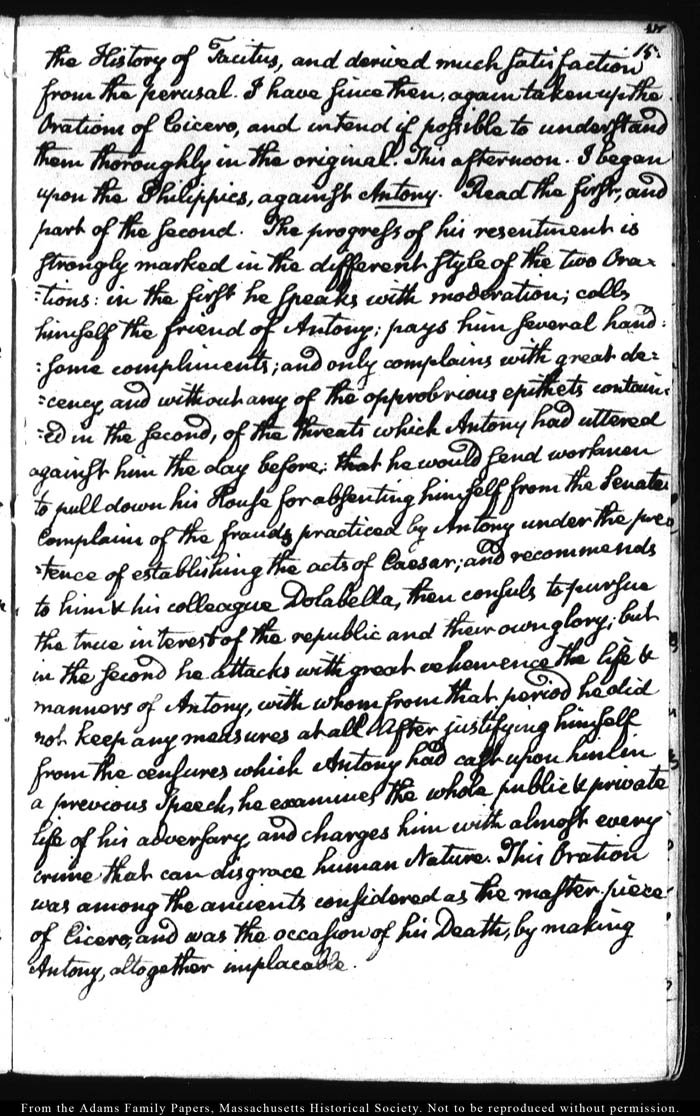 15.
the History of Tacitus, and derived much satisfaction
from the perusal. I have since then, again taken up the
Orations of Cicero, and intend if possible to understand
them thoroughly in the original. This afternoon. I began
upon the Philippics, against Antony. Read the first, and
part of the second. The progress of his resentment is
strongly marked in the different style of the two Ora=
=tions: in the first he speaks with moderation; calls
himself the friend of Antony; pays him several hand=
=some compliments; and only complains with great de=
=cency, and without any of the opprobrious epithets contain=
=ed in the second, of the threats which Antony had uttered
against him the day before; that he would send workmen
to pull down his House for absenting himself from the Senate.
Complains of the frauds practiced by Antony under the pre=
=tence of establishing the acts of Caesar; and recommends
to him & his colleague Dolabella, then consuls to pursue
the true interest of the republic and their own glory; but
in the second he attacks with great vehemence the life &
manners of Antony, with whom from that period he did
not keep any measures at all. After justifying himself
from the censures which Antony had cast upon him in
a previous Speech, he examines the whole public & private
life of his adversary, and charges him with almost every
crime that can disgrace human Nature. This Oration
was among the ancients considered as the master piece
of Cicero, and was the occasion of his Death, by making
Antony, altogether implacable.
From the Adams Family Papers, Massachusetts Historical Society. Not to be reproduced without permission.